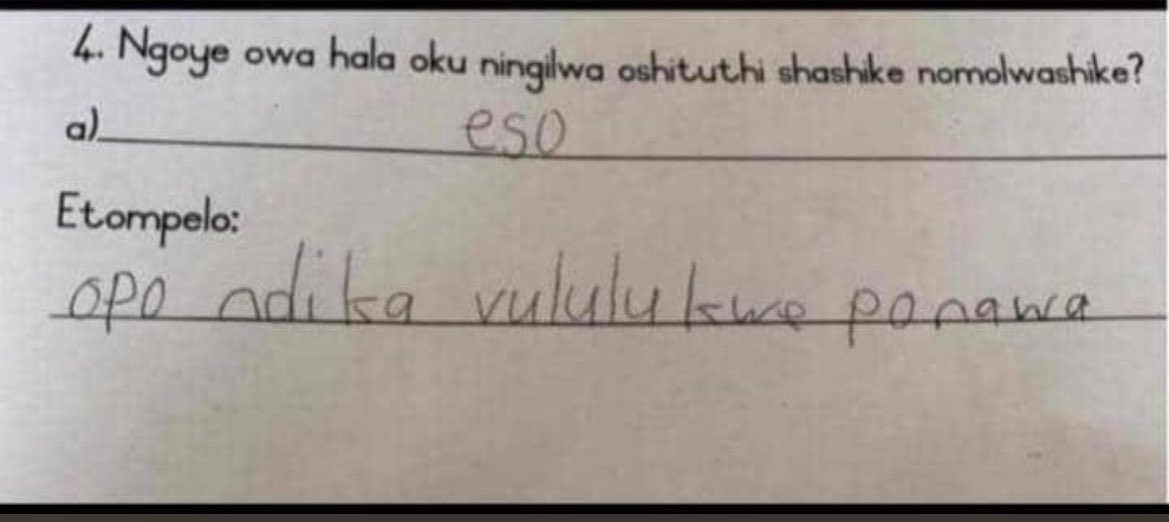 4. Ngoye owa hala oku ningilwa oshituthi shashike nomolwashike?
a) eso
Etompelo:
opo ndika vululukwe ponawa